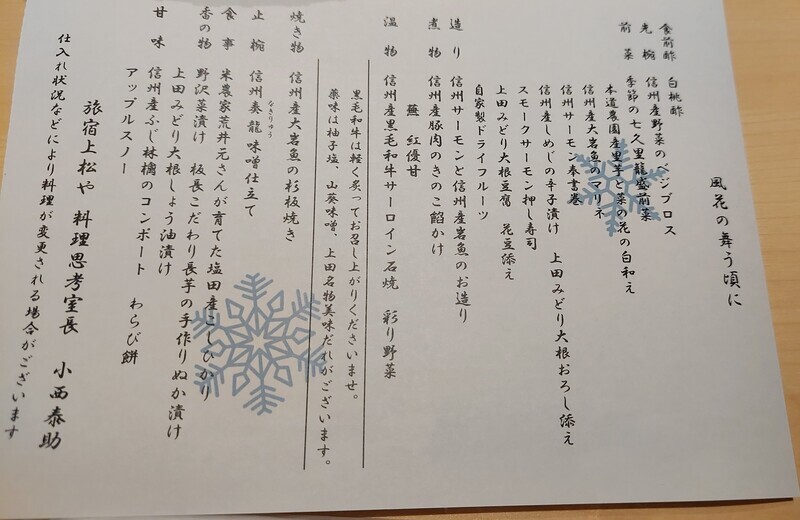 風花の舞う頃に
食前酢 白桃酢
先椀 信州産野菜のベジブロス
前菜 季節の七久里籠盛前菜
本道農園産里芋と菜の花の白和え
信州産大岩魚のマリネ
信州サーモン奉書巻
信州産しめじの辛子漬け 上田みどり大根おろし添え
スモークサーモン押し寿司
上田みどり大根豆腐 花豆添え
自家製ドライフルーツ
造り 信州サーモンと信州産岩魚のお造り
煮物 信州産豚肉のきのこ餡かけ
蕪 紅優甘
温物 信州産黒毛和牛サーロイン石焼 彩り野菜
黒毛和牛は軽く炙ってお召し上がりくださいませ。
薬味は柚子塩、山葵味噌、上田名物美味だれがございます。
焼き物 信州産大岩魚の杉板焼き
止椀 信州奏龍味噌仕立て
食事 米農家荒井元さんが育てた塩田産こしひかり
香の物 野沢菜漬け 板長こだわり長芋の手作りぬか漬け
上田みどり大根しょう油漬け
甘味 信州産ふじ林檎のコンポート わらび餅
アップルスノー
旅宿上松や 料理思考室長 小西泰助
仕入れ状況などにより料理が変更される場合がございます